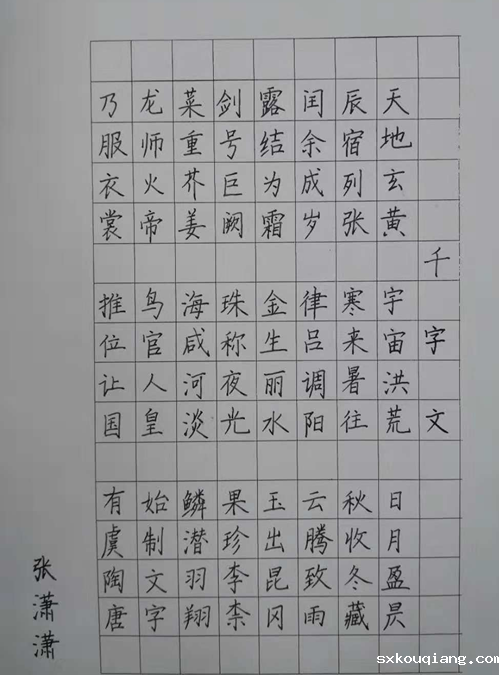 千字文
天地玄黄 宇宙洪荒 日月盈昃
辰宿列张 寒来暑往 秋收冬藏
闰余成岁 律吕调阳 云腾致雨
露结为霜 金生丽水 玉出昆冈
剑号巨阙 珠称夜光 果珍李柰
菜重芥姜 海咸河淡 鳞潜羽翔
龙师火帝 鸟官人皇 始制文字
乃服衣裳 推位让国 有虞陶唐
张潇潇
sxkouqiang.com